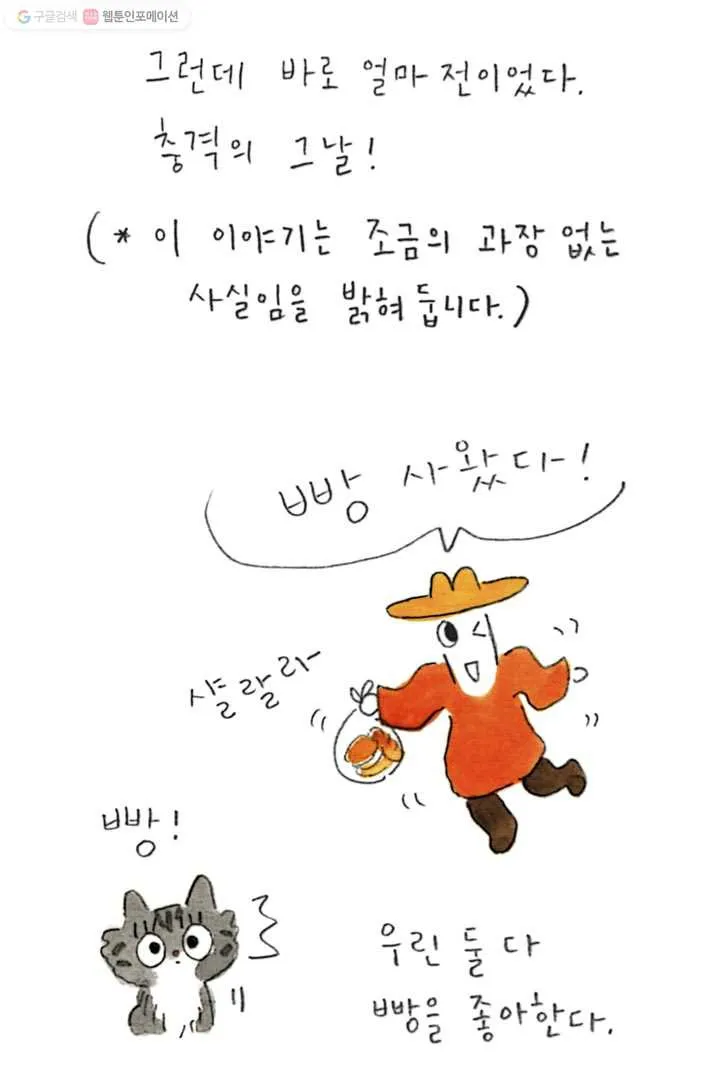 구글검색 웹툰인포메이션
그런데 바로 얼마 전이었다.
충격의 그날!
(* 이 이야기는 조금의 과장 없는
사실임을 밝혀 둡니다.)
빵 사왔다!
샬랄라
빵!
우린 둘 다
빵을 좋아한다.